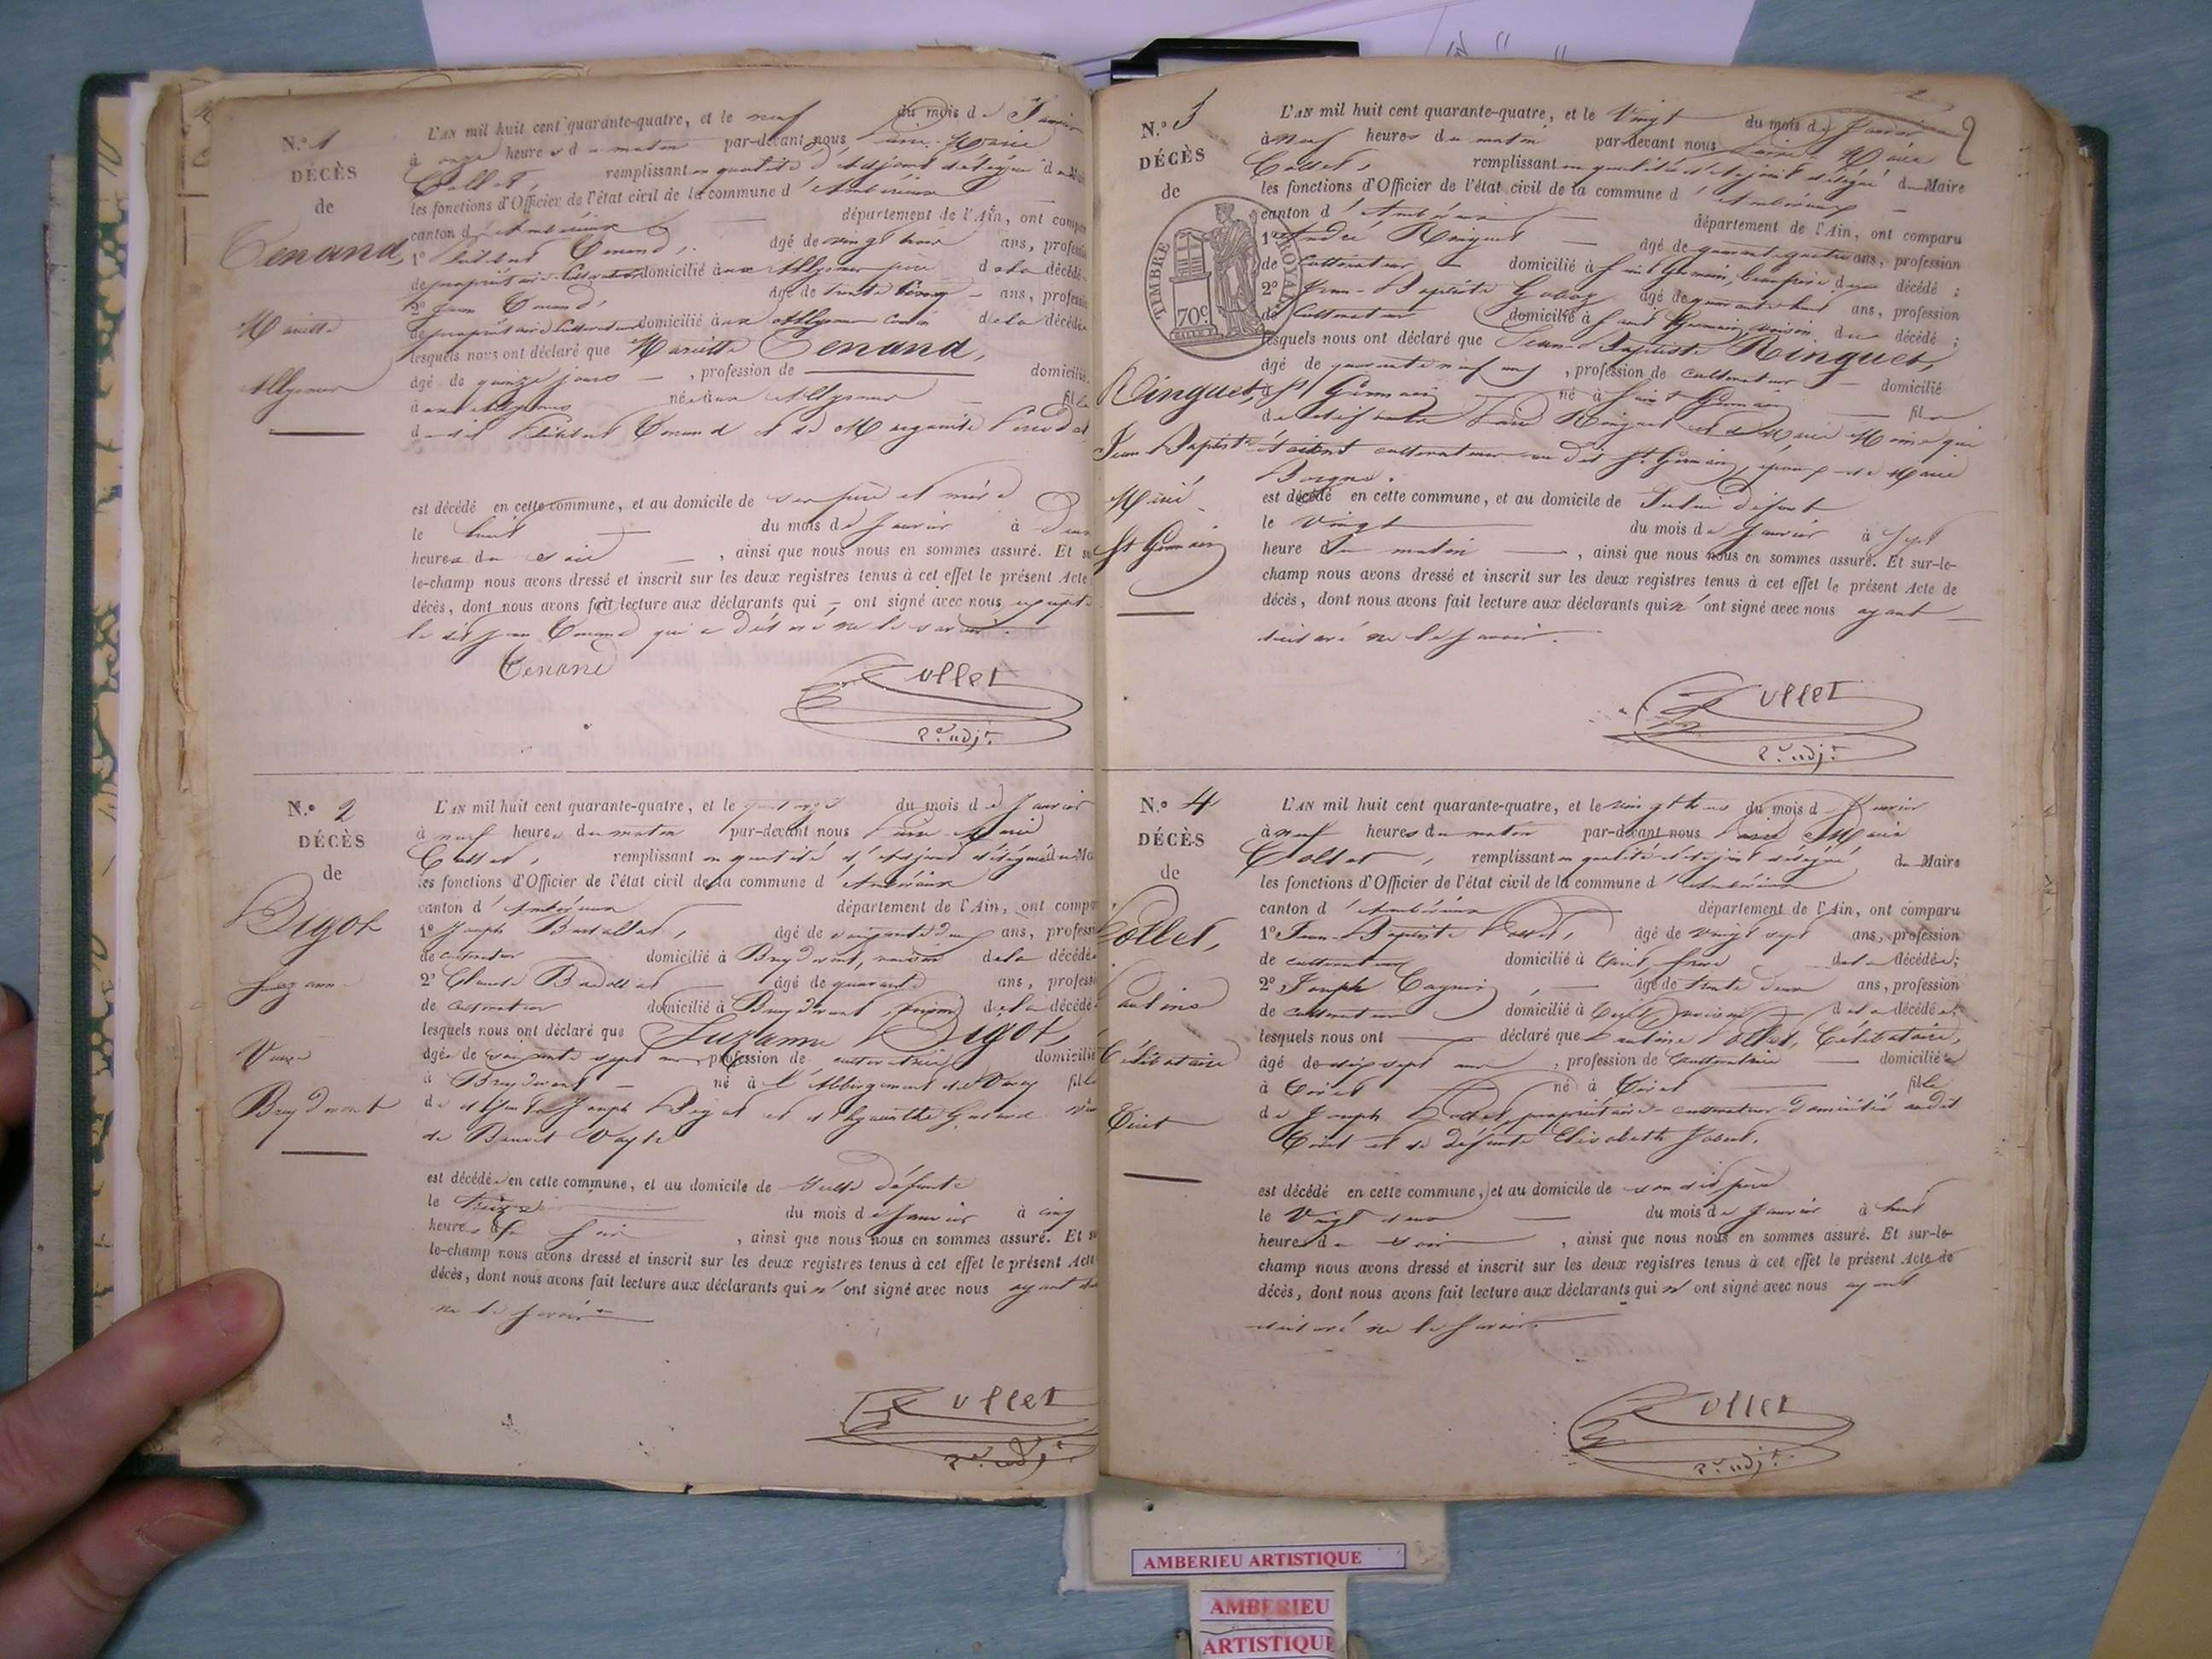 N.º 1
DÉCÈS
de
Tenand,
Mariette
Allymes
L'AN mil huit cent quarante-quatre, et le neuf du mois de Janvier
à onze heures du matin par-devant nous Marie
Collet, remplissant en qualité d'Adjoint délégué
les fonctions d'Officier de l'état civil de la commune d'Ambérieux
canton d'Ambérieux département de l'Ain, ont comp
1º Tenand, âgé de vingt trois ans, profess
de propriétaire cultivateur domicilié aux Allymes père de la décédé
2º Jean Tenand âgé de trente cinq ans, profess
de propriétaire cultivateur domicilié aux Allymes cousin de la décédé
lesquels nous ont déclaré que Mariette Tenand,
âgé de quinze jours, profession de domicilié
aux Allymes née aux Allymes fille
dudit Tenand et de Marguerite
est décédé en cette commune, et au domicile de ses père et mère
le huit du mois de Janvier à
heures du soir, ainsi que nous nous en sommes assuré. Et su
le-champ nous avons dressé et inscrit sur les deux registres tenus à cet effet le présent Acte
décès, dont nous avons fait lecture aux déclarants qui ont signé avec nous excepté
le dit Jean Tenand qui a déclaré ne le savoir.
Tenand
Collet
2e adjt.
N.º 2
DÉCÈS
de
Bigot
Suzanne
Veuve
Breydevent
L'AN mil huit cent quarante-quatre, et le quatorze du mois de Janvier
à neuf heures du matin par-devant nous Marie
Collet, remplissant en qualité d'Adjoint délégué du Ma
les fonctions d'Officier de l'état civil de la commune d'Ambérieux
canton d'Ambérieux département de l'Ain, ont comp
1º Joseph, âgé de ans, profess
de cultivateur domicilié à voisin de la décédé
2º Claude âgé de quarante ans, profess
de cultivateur domicilié à de la décédé
lesquels nous ont déclaré que Suzanne Bigot,
âgée de soixante sept ans, profession de cultivatrice domicilié
à né à l'Abbergement de Varey fille
de défunts Joseph Bigot et d'hyacinthe
de Benoit
est décédée en cette commune, et au domicile de
le treize du mois de Janvier à cinq
heures du soir, ainsi que nous nous en sommes assuré. Et su
le-champ nous avons dressé et inscrit sur les deux registres tenus à cet effet le présent Acte
décès, dont nous avons fait lecture aux déclarants qui n'ont signé avec nous ayant
ne le savoir
Collet
2e adjt.
2
N.º 3
DÉCÈS
de
TIMBRE ROYAL
70c
Ringuet,
Jean Baptiste
Marié
St Germain
L'AN mil huit cent quarante-quatre, et le Vingt du mois de Janvier
à neuf heures du matin par-devant nous Marie
Collet, remplissant en qualité d'adjoint délégué du Maire
les fonctions d'Officier de l'état civil de la commune d'Ambérieux
canton d'Ambérieux département de l'Ain, ont comparu
1º André Ringuet âgé de quarante quatre ans, profession
de cultivateur domicilié à Saint Germain, du décédé;
2º Jean-Baptiste âgé de quarante huit ans, profession
de cultivateur domicilié à Saint Germain, voisin du décédé;
lesquels nous ont déclaré que Jean-Baptiste Ringuet,
âgé de quarante neuf ans, profession de cultivateur domicilié
à St Germain né à Saint Germain fils
de Ringuet et de Marie qui
étaient cultivateurs au dit St Germain, époux de Marie
est décédé en cette commune, et au domicile de défunt
le Vingt du mois de Janvier à Sept
heure du matin, ainsi que nous nous en sommes assuré. Et sur-le-
champ nous avons dressé et inscrit sur les deux registres tenus à cet effet le présent Acte de
décès, dont nous avons fait lecture aux déclarants qui n'ont signé avec nous ayant
déclaré ne le savoir.
Collet
2e adjt.
N.º 4
DÉCÈS
de
Collet,
Célibataire
Tiret
L'AN mil huit cent quarante-quatre, et le vingt trois du mois de Janvier
à neuf heures du matin par-devant nous Marie
Collet, remplissant en qualité d'adjoint délégué du Maire
les fonctions d'Officier de l'état civil de la commune d'Ambérieux
canton d'Ambérieux département de l'Ain, ont comparu
1º Jean-Baptiste, âgé de vingt sept ans, profession
de cultivateur domicilié à Tiret, frère de la décédée;
2º Joseph, âgé de trente deux ans, profession
de cultivateur domicilié à Tiret, voisin de la décédée;
lesquels nous ont déclaré que Célibataire,
âgé de dix sept ans, profession de cultivatrice domiciliée
à Tiret né à Tiret fille
de Joseph propriétaire-cultivateur domicilié audit
Tiret et de défunte Elisabeth
est décédé en cette commune, et au domicile de son dit père
le Vingt deux du mois de Janvier à huit
heures du soir, ainsi que nous nous en sommes assuré. Et sur-le-
champ nous avons dressé et inscrit sur les deux registres tenus à cet effet le présent Acte de
décès, dont nous avons fait lecture aux déclarants qui n'ont signé avec nous ayant
déclaré ne le savoir.
Collet
2e adjt.
AMBERIEU ARTISTIQUE
AMBERIEU
ARTISTIQUE